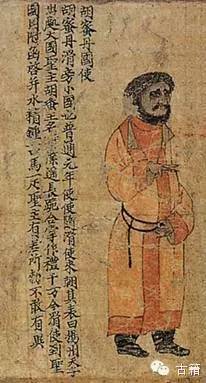 胡蜜丹國使
胡蜜丹滑旁小國也普通元年使使隨滑使來朝其表曰揚州天子
出處大國聖主胡蜜王名遙長跪合掌作禮千万今滑使到聖
國因附函啓并水精鍾一口馬一疋聖主有若所勑不敢有異
古籍